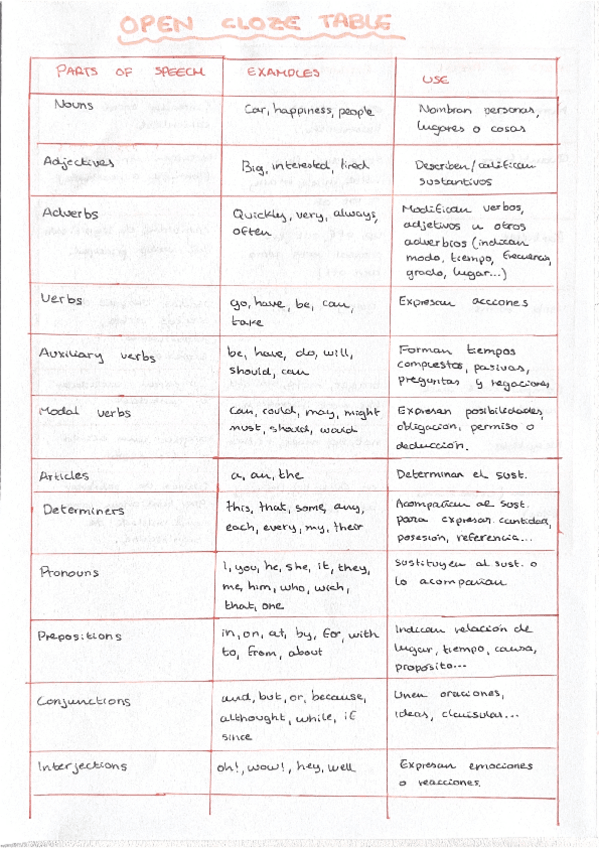 OPEN CLOZE TABLE
PARTS OF SPEECH
EXAMPLES
USE
Nouns
Car, happiness, people
Nombran personas,
lugares o cosas
Adjectives
Big, interested, tired
Describen/califican
sustantivos
Adverbs
Quickly, very, always,
often
Modifican verbos,
adjetivos u otros
adverbios (indican
modo, tiempo, frecuencia,
grado, lugar...)
Verbs
go, have, be, can,
take
Expresan acciones
Auxiliary verbs
be, have, do, will,
should, can
Forman tiempos
compuestos, pasivas,
preguntas y negaciones
Modal verbs
can, could, may, might
must, should, would
Expresan posibilidades,
obligación, permiso o
deducción.
Articles
a, an, the
Determinan el sust.
Determiners
this, that, some, any,
each, every, my, their
Acompañan al sust.
para expresar cantidad,
posesión, referencia...
Pronouns
I, you, he, she, it, they,
me, him, who, wich,
that, one
Sustituyen al sust. o
lo acompañan
Prepositions
in, on, at, by, for, with
to, from, about
Indican relación de
lugar, tiempo, causa,
propósito...
Conjunctions
and, but, or, because,
althought, while, if
since
Unen oraciones,
ideas, clausulas...
Interjections
oh!, wow!, hey, well
Expresan emociones
o reacciones.